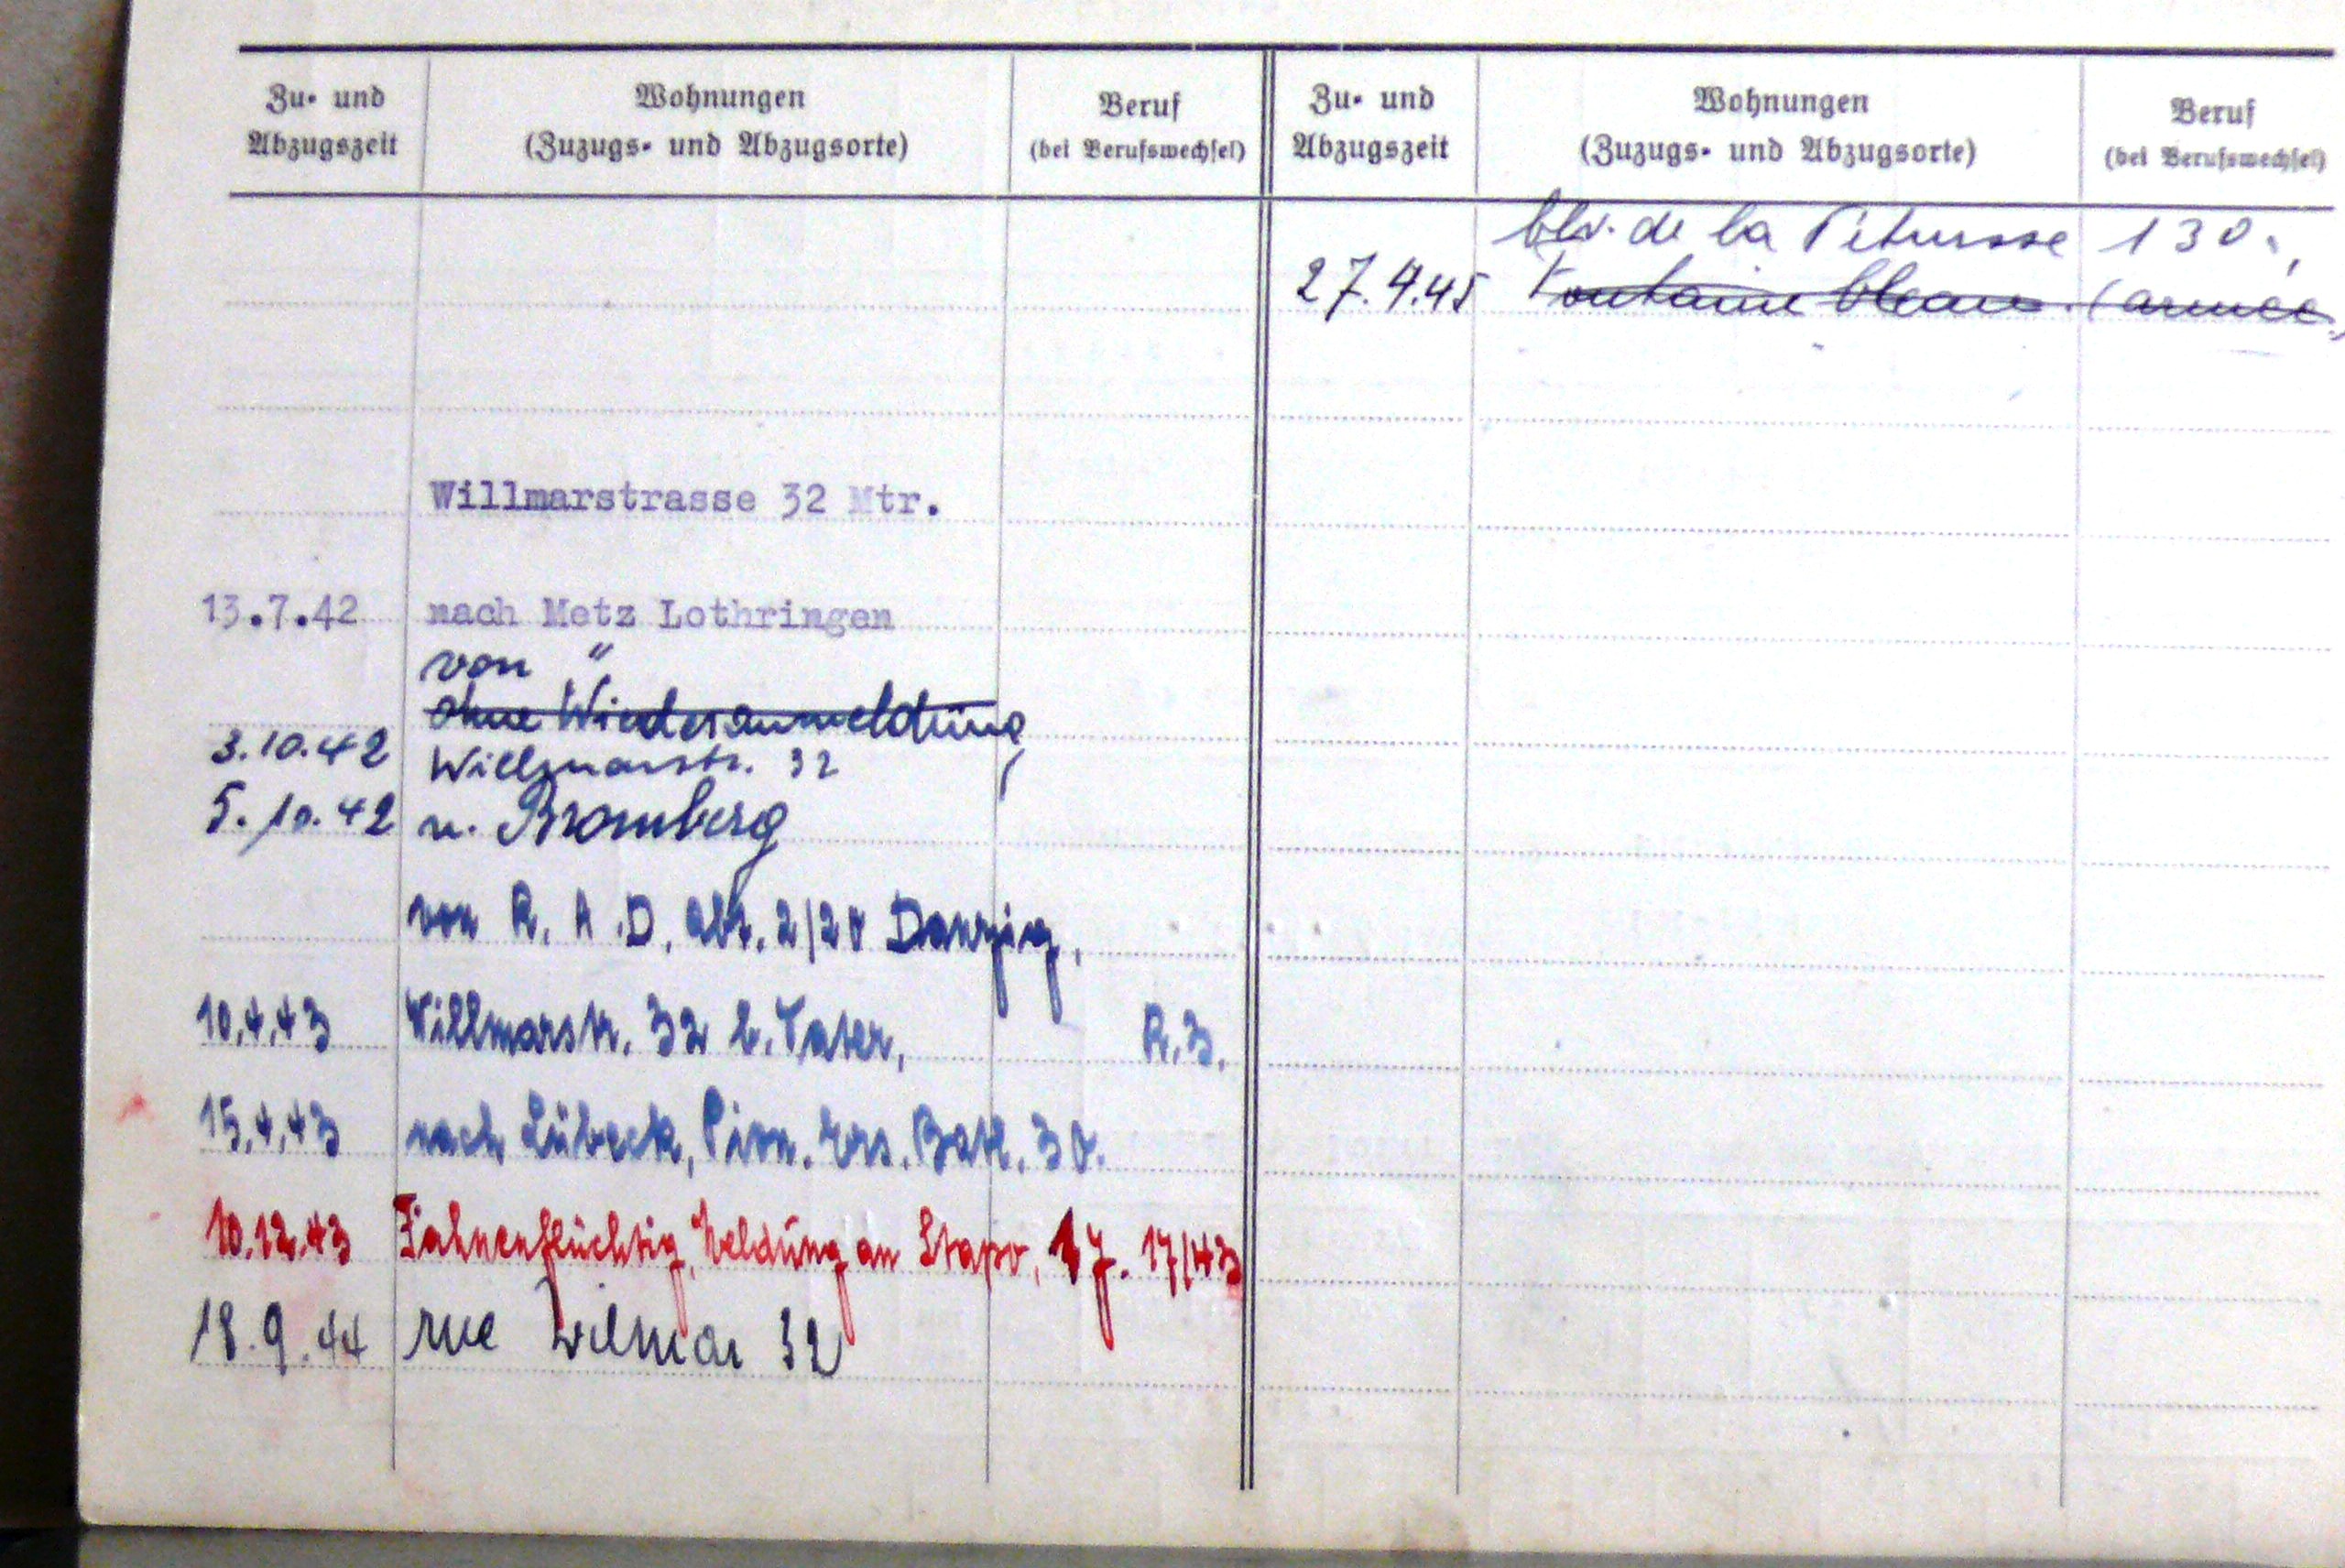 Zu- und Abzugszeit
Wohnungen
(Zuzugs- und Abzugsorte)
Beruf
(bei Berufswechsel)
Willmarstrasse 32 Mtr.
13.7.42 nach Metz Lothringen
von "
ohne Wiederanmeldung
3.10.42 Willmarstr. 32
5.10.42 n. Bromberg
von R.A.D. Abt. 2/20 Danzig,
10.4.43 Willmarstr. 32 b. Vater, R.Z.
15.4.43 nach Lübeck, Pion. Ers. Batl. 30.
10.12.43 Fahnenflüchtig, Meldung an Stapo, 17/43
18.9.44 rue Wilmar 32
Zu- und Abzugszeit
Wohnungen
(Zuzugs- und Abzugsorte)
Beruf
(bei Berufswechsel)
blv. de la Pétrusse 130.,
27.4.45 Fontainebleau. (armée)